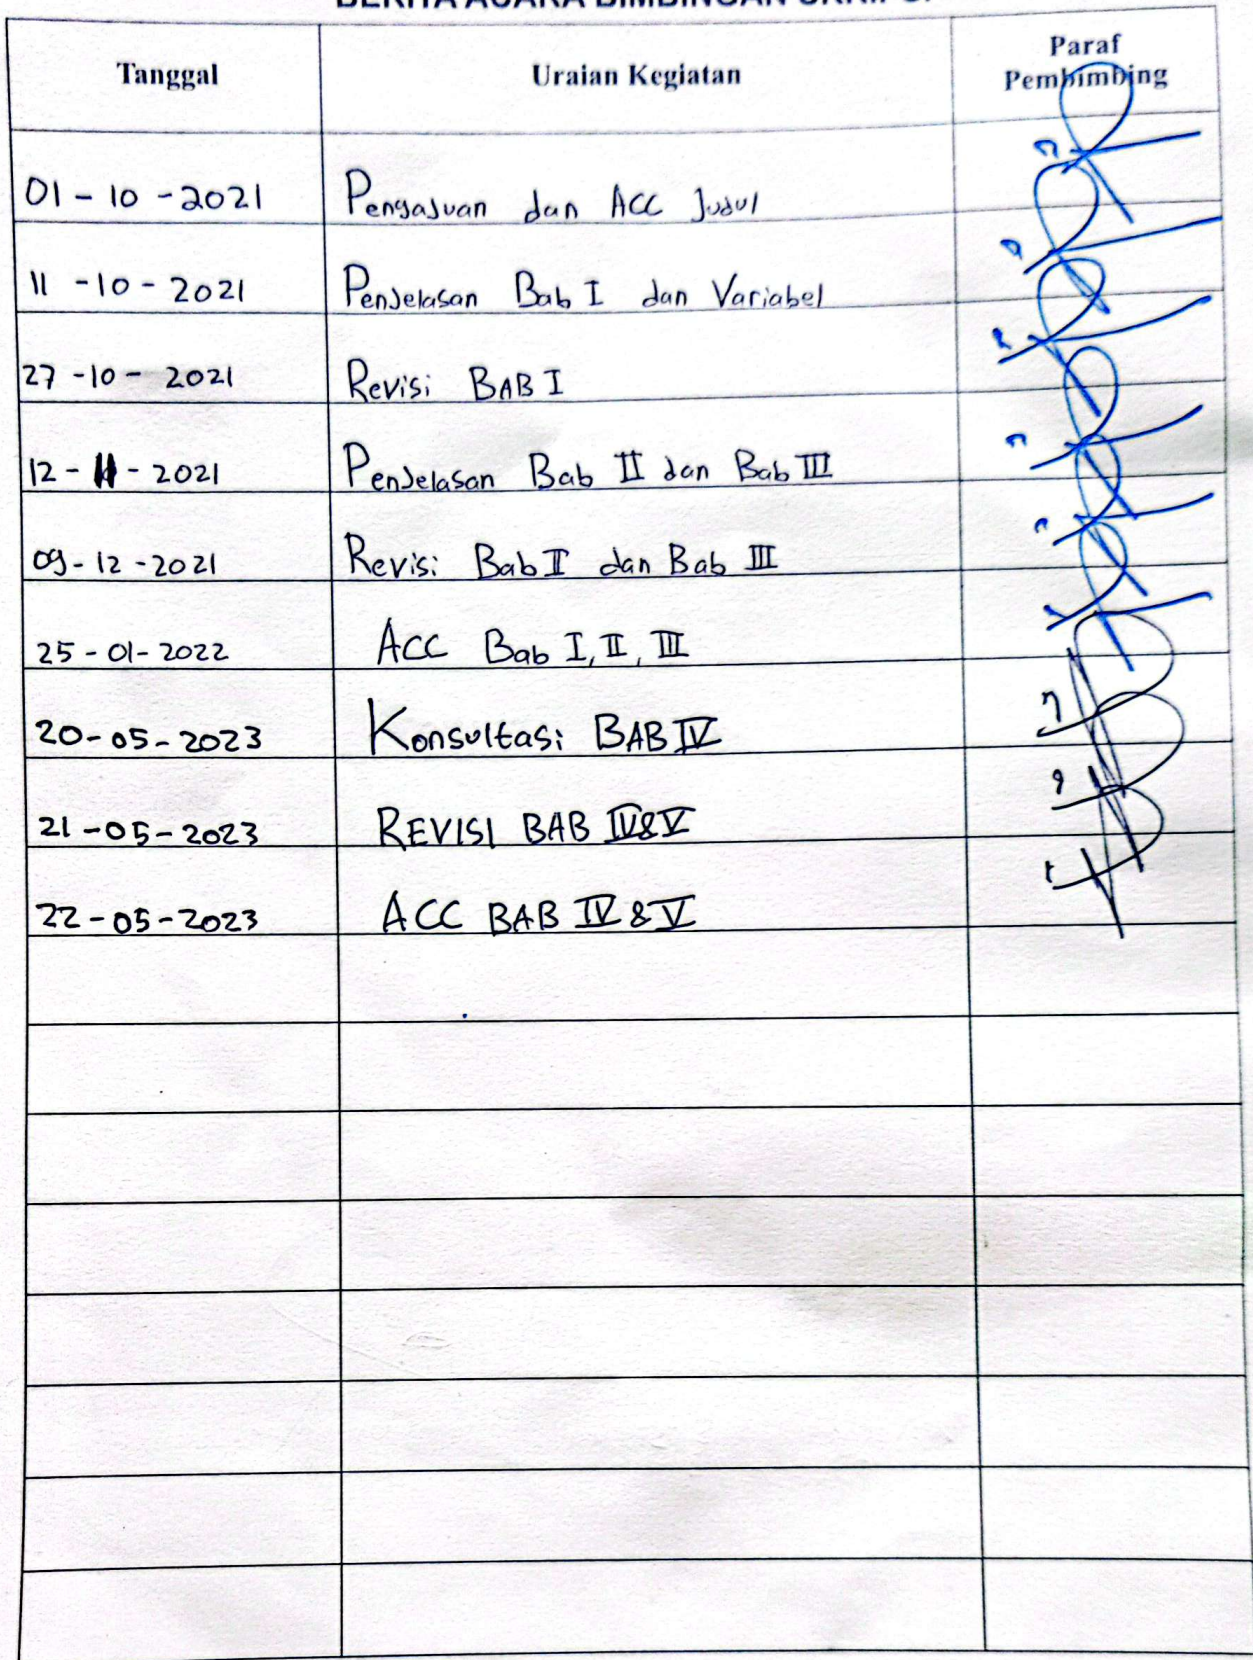 BERITA ACARA BIMBINGAN SKRIPSI
Tanggal
Uraian Kegiatan
Paraf
Pembimbing
01-10-2021 Pengajuan dan ACC Judul
11-10-2021 Penjelasan Bab I dan Variabel
27-10-2021 Revisi BAB I
12-11-2021 Penjelasan Bab II dan Bab III
09-12-2021 Revisi Bab II dan Bab III
25-01-2022 ACC Bab I, II, III
20-05-2023 Konsultasi BAB IV
21-05-2023 REVISI BAB IV&V
22-05-2023 ACC BAB IV & V